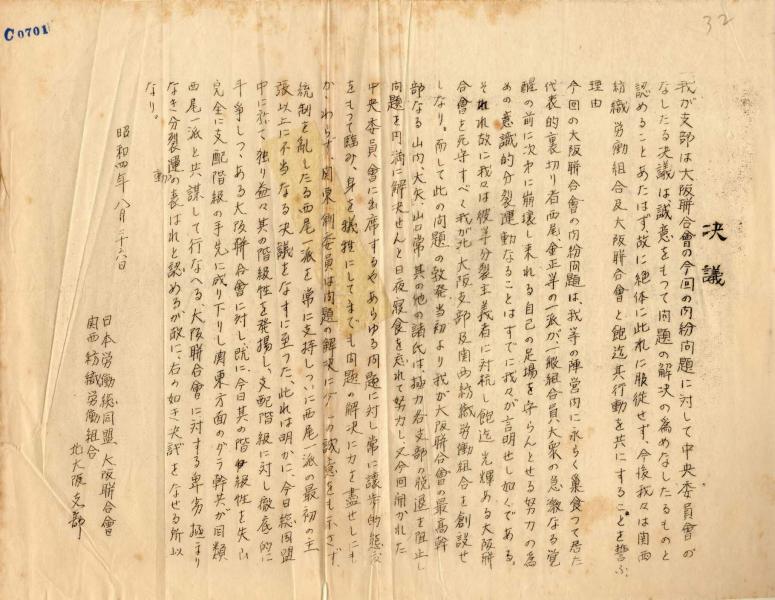 C0701
32
決議
我が支部は大阪聯合會の今回の内紛問題に対して中央委員會の
なしたる決議は誠意をもつて問題の解決の為めなしたるものと
認めることあたはず故に絶体に此れに服従せず、今後我々は関西
紡織労働組合及大阪聯合會と飽迄其行動を共にすることを誓ふ
理由
今回の大阪聯合會の内紛問題は、我等の陣営内に永らく巣食つて居た
代表的裏切り者西尾金正等の一派が一般組合員大衆の急激なる覚
醒の前に次第に崩壊し来れる自己の足場を守らんとせる努力の為
めの意識的分裂運動なることはすでに我々が言明せし如くである、
それ故に我々は彼等分裂主義者に対抗し飽迄光輝ある大阪聯
合會を死守すべく我が北大阪支部及関西紡織労働組合を創設せ
しなり。而して此の問題の勃発当初より我が大阪聯合會の最高幹
部なる山内、大矢、山口常其の他の諸氏は極力各支部の脱退を阻止し
問題を円満に解決せんと日夜寝食を忘れて努力し、又今回開かれた
中央委員會に出席するやあらゆる問題に対し常に譲歩的態度
をもつて臨み、身を犠牲にしてまでも問題の解決に力を盡せしにも
かゝわらず、関東側委員は問題の解決に少しの誠意をも示さず、
統制を乱したる西尾一派を常に支持しついに西尾一派の最初の主
張以上に不当なる決議をなすに至つた、此れは明かに、今日総同盟
中に於て独り益々其の階級性を発揚し、支配階級に対し徹底的に
斗争しつゝある大阪聯合會に対し、既に今日其の階級性を失い
完全に支配階級の手先に成り下りし関東方面のダラ幹共が同類
西尾一派と共謀して行なへる、大阪聯合會に対する卑劣極まり
なき分裂運動の表はれと認めるが故に、右の如き決議をなせる所以
なり。
昭和四年八月二十六日
日本労働総同盟大阪聯合會
関西紡織労働組合
北大阪支部